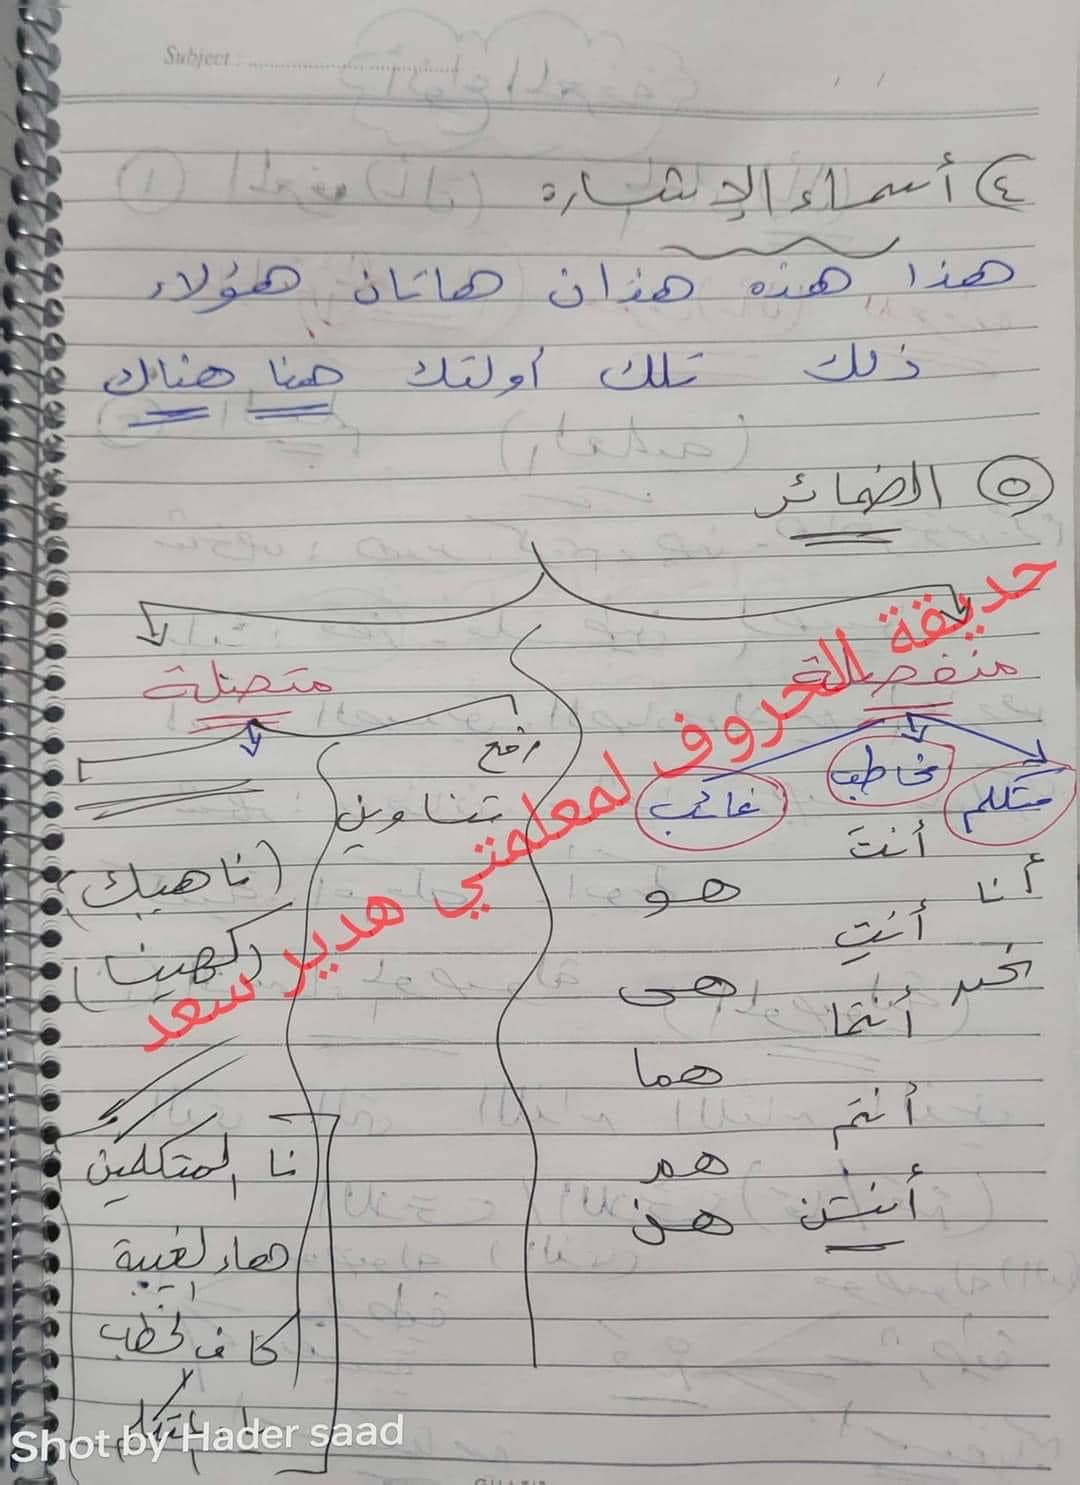 Subject :
٤) أسماء الإشاره
هذا هذه هذان هاتان هؤلاء
ذلك تلك أولئك هنا هناك
٥ الضمائر
منفصلة متصلة
متكلم مخاطب غائب
رفع
تناوين
أنا
نحن
أنتَ
أنتِ
أنتما
أنتم
أنتن
هو
هي
هما
هم
هن
(ناهيك)
(كهينا)
نا المتكلمين
هاء لغيبة
كاف لخطب
حديقة الحروف لمعلمتي هدير سعد
Shot by Hader saad